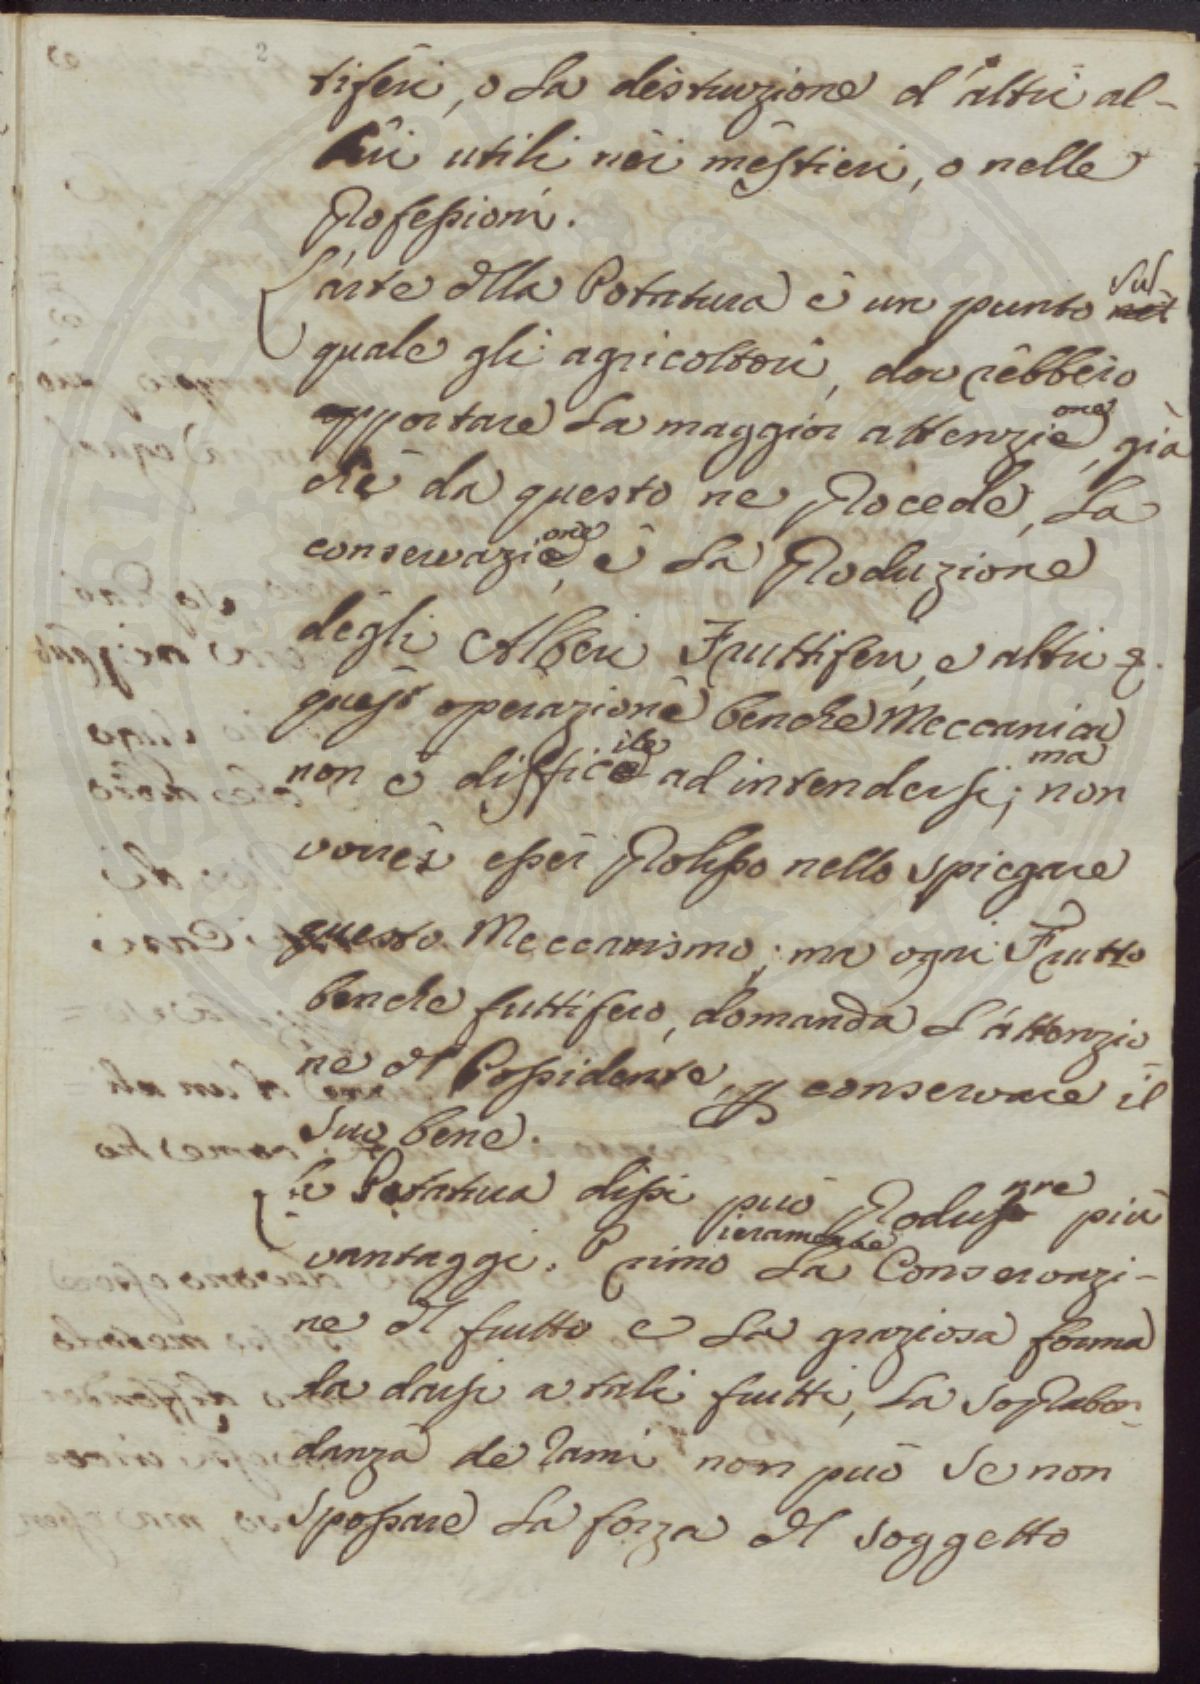 2
tiferi, o la distruzione d'altri al-
beri utili nei mestieri, o nelle
Professioni.
L'arte della Potatura è un punto sul
quale gli agricoltori, dovrebbero
apportare la maggior attenzione, già
che da questo ne Procede, la
conservazione, e la Produzione
degli Alberi Fruttiferi, e altri &.
quest operazione benche Meccanica
non è difficile ad intendersi; ma non
vorrei esser Prolisso nello spiegare
questo Meccanismo; ma ogni Frutto
benche futtifero, domanda l'attenzio-
ne del Possidente, per conservare il
suo bene.
la Potatura dissi può Produrre più
vantaggi. Primieramente la Conservazi-
ne del frutto e la graziosa forma
da darsi a tali frutti, la soprabon-
danza de rami non può se non
spossare la forza del soggetto